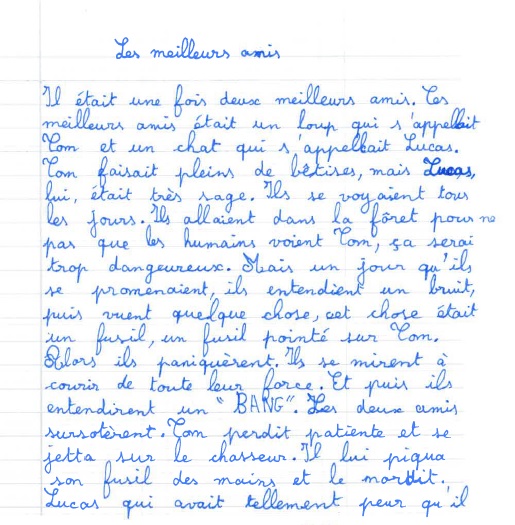 Les meilleurs amis
Il était une fois deux meilleurs amis. Ces
meilleurs amis était un loup qui s'appellait
Tom et un chat qui s'appellait Lucas.
Tom faisait pleins de bêtises, mais Lucas,
lui, était très sage. Ils se voyaient tous
les jours. Ils allaient dans la fôret pour ne
pas que les humains voient Tom, ça serai
trop dangeureux. Mais un jour qu'ils
se promenaient, ils entendient un bruit,
puis vuent quelque chose, cet chose était
un fusil, un fusil pointé sur Tom.
Alors ils paniquèrent. Ils se mirent à
courir de toute leur force. Et puis ils
entendirent un "BANG". Les deux amis
sursotèrent. Tom perdit patiente et se
jetta sur le chasseur. Il lui piqua
son fusil des mains et le mordit.
Lucas qui avait tellement peur qu'il